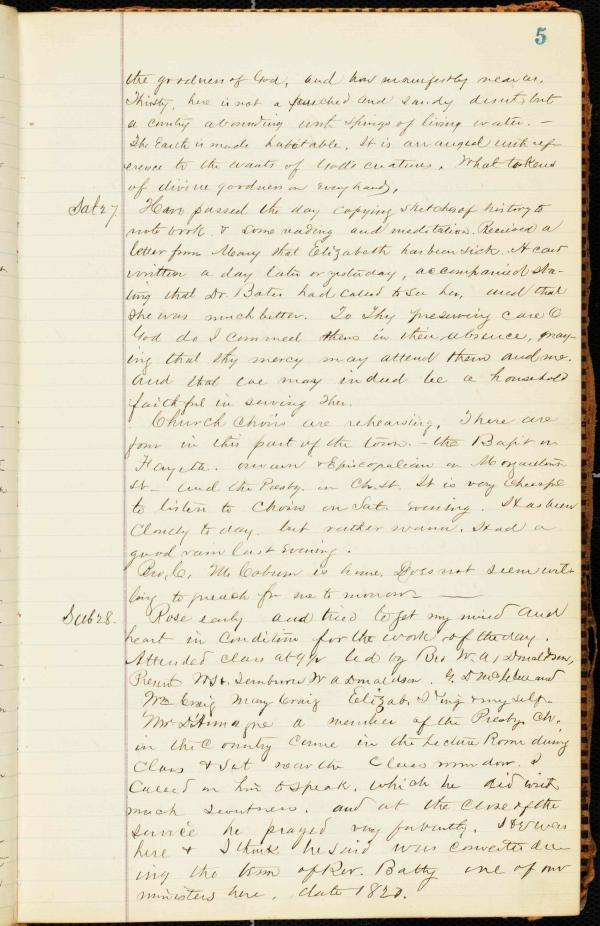 5
the goodness of God, and how manifestly near us.
Thirsty, here is not a parched and sandy desert but
a country abounding with springs of living water. –
The Earth is made habitable. It is arranged with ref-
erence to the wants of God's creatures. What tokens
of divine goodness on every hand.
Sat 27. Have passed the day copying sketches of history to
note book & some reading and meditation. Received a
letter from Mary that Elizabeth has been sick. A card
written a day later or yesterday, accompanied sta-
ting that Dr. Bates had called to see her, and that
she was much better. To Thy preserving care O
God do I commend them in their absence, pray-
ing that thy mercy may attend them and me.
And that we may indeed be a household
faithful in serving Thee.
Church Choirs are rehearsing. There are
four in this part of the town. – the Bapt on
Fayette. our own & Episcopalian on Morgantown
St – and the Presby. in Ch. St. It is very cheerful
to listen to Choirs on Sat. Evening. It has been
Cloudy to day but rather warm. Had a
good rain last Evening.
Bro. C. M. Coburn is home. Does not seem wil-
ling to preach for me to morrow —
Sab 28. Rose early and tried to get my mind and
heart in condition for the work of the day.
Attended class at 9 led by Bro W. A. Donaldson,
Present W. A. Donaldson. G. D.
Wm Craig Mary Craig Elizab. & myself.
Mr. a member of the Presby. Ch.
in the Country came in the Lecture Room during
Class & sat near the Class window. I
called on him to speak. which he did with
much sweetness. and at the close of the
service he prayed very fervently. was
here & I think he said was converted du-
ing the term of Rev. Batty one of our
ministers here, date